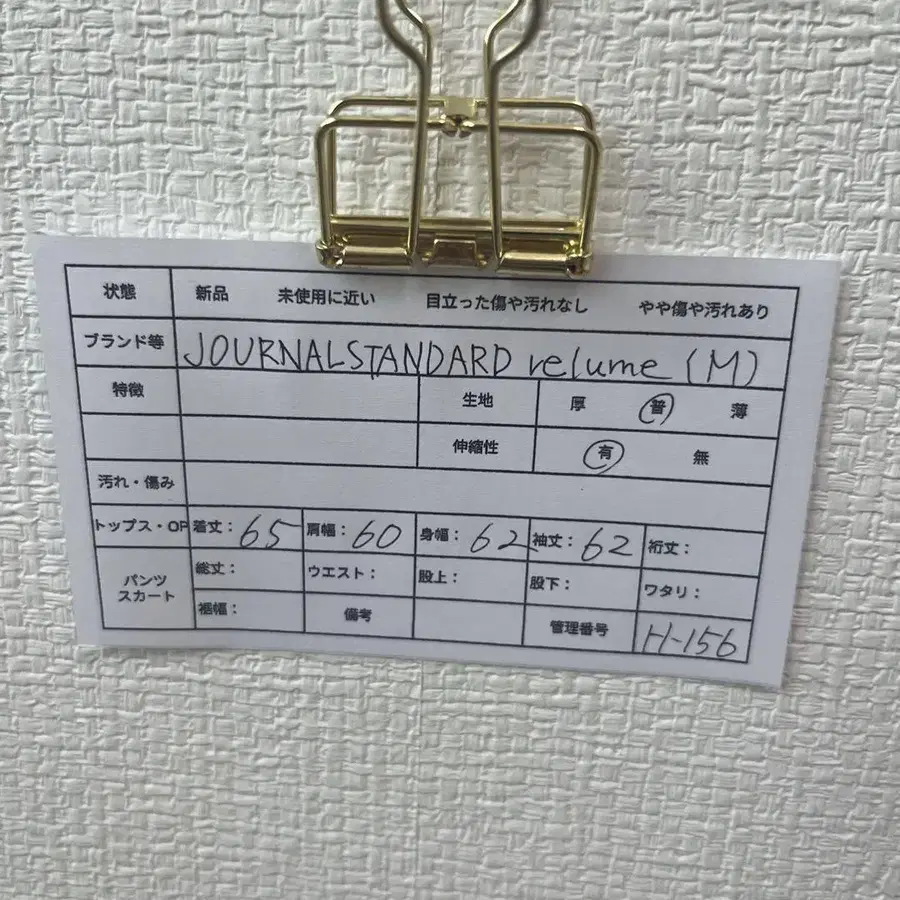 状態 新品 未使用に近い 目立った傷や汚れなし やや傷や汚れあり
ブランド等 JOURNALSTANDARD relume (M)
特徴 生地 厚 普 薄
伸縮性 有 無
汚れ・傷み
トップス・OP 着丈：65 肩幅：60 身幅：62 袖丈：62 裄丈：
パンツ スカート 総丈： ウエスト： 股上： 股下： ワタリ：
裾幅： 備考 管理番号 H-156